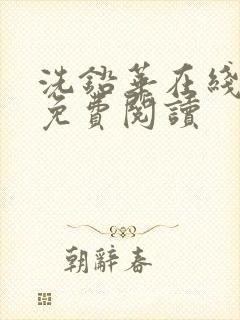 洗鉛華在綫
免費閱讀
朝辭春